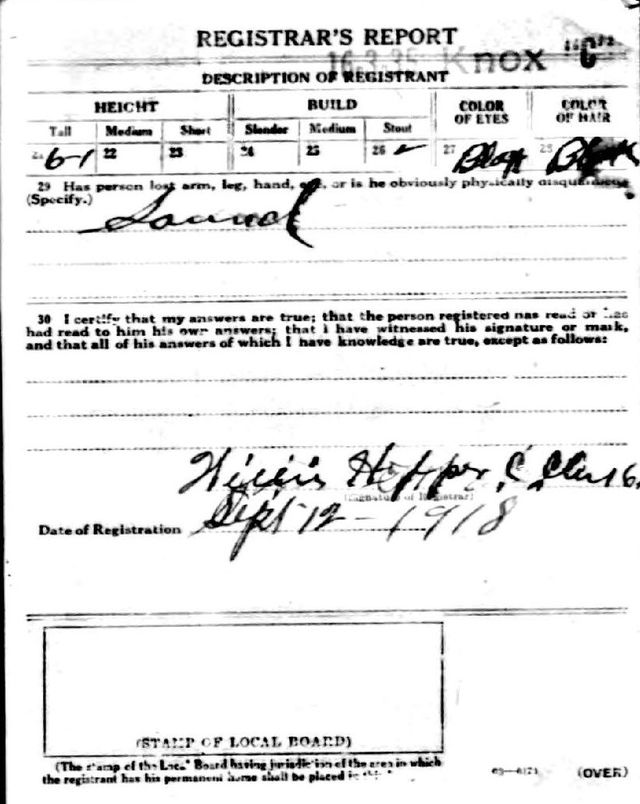 REGISTRAR'S REPORT
16-3-35 Knox C
DESCRIPTION OF REGISTRANT
HEIGHT BUILD COLOR OF EYES COLOR OF HAIR
Tall Medium Short Slender Medium Stout
21 6-1 22 23 24 25 26 27 Black 28 Black
29 Has person lost arm, leg, hand, eye, or is he obviously physically disqualified?
(Specify.)
Sound
30 I certify that my answers are true; that the person registered has read or has
had read to him his own answers; that I have witnessed his signature or mark,
and that all of his answers of which I have knowledge are true, except as follows:
Willis Hopper, C. Clerk
(Signature of Registrar)
Date of Registration Sept 12 - 1918
(STAMP OF LOCAL BOARD)
(The stamp of the Local Board having jurisdiction of the area in which
the registrant has his permanent home shall be placed in this
(OVER)